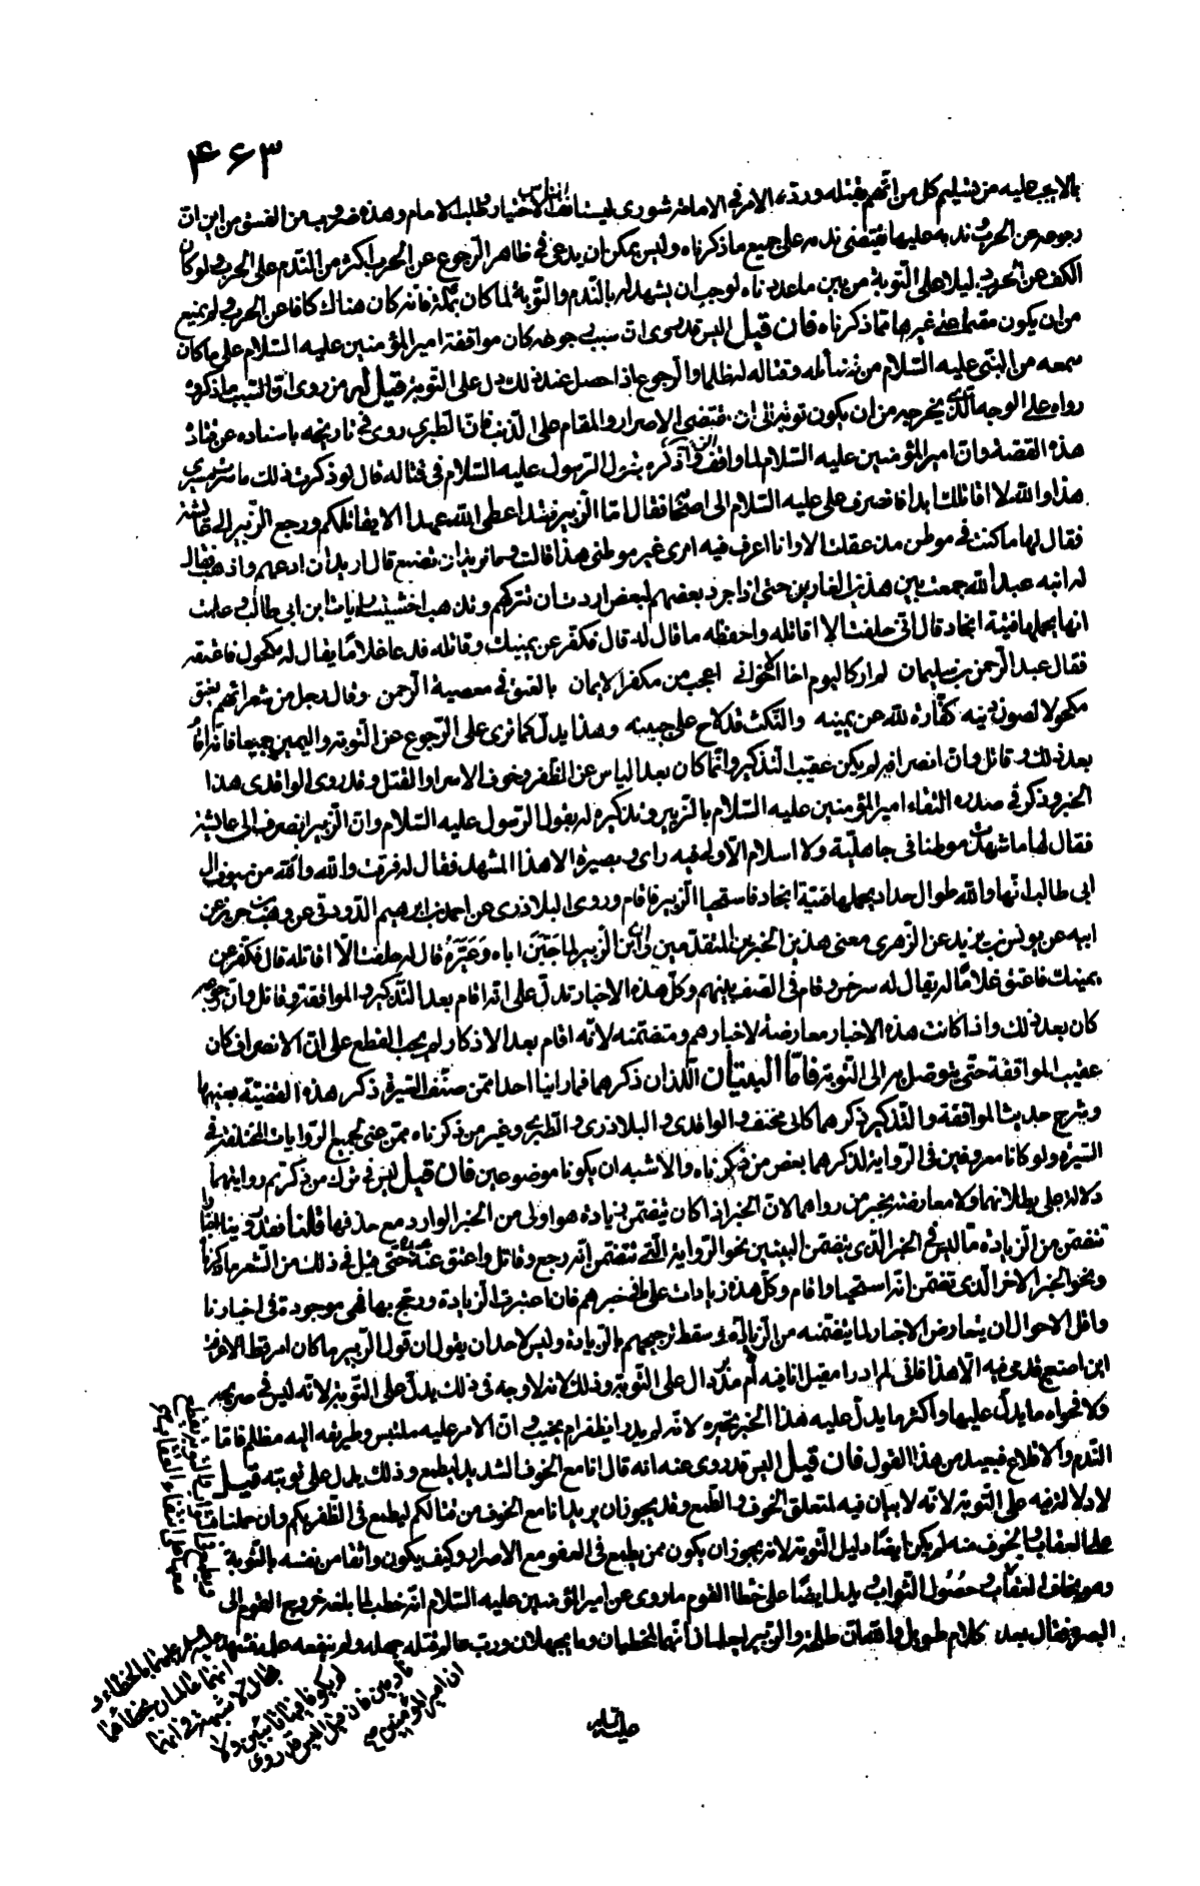 ۴۶۳
بما لا يجب عليه من تسليم كل من اتهم بقتله ورد الامر في الامامة شورى ليستأنف الناس الاختيار وطلب الامام وهذه ضروب من الفسق من اين ان
رجوعه عن الحرب ندم عليها فيقتضي ندمه على جميع ما ذكرناه وليس يمكن ان يدعى في ظاهر الرجوع عن الحرب اكثر من الندم على الحرب ولو كان
الكف عن الحرب دليلا على التوبة من بين ما عددناه لوجب ان يشهد له بالندم والتوبة لما كان بمكة فانه كان هناك كافا عن الحرب ولم يمنع
من ان يكون مقيما على غيرها مما ذكرناه فان قيل اليس قد روى ان سبب رجوعه كان موافقة امير المؤمنين عليه السلام على ما كان
سمعه من النبي عليه السلام من قتاله له ظلما والرجوع اذا حصل عند ذلك دل على التوبة قيل لهم من روى ان السبب ما ذكرت
رواه على الوجه الذي يخرجه من ان يكون توبة الى ان يقتضي الاصرار والمقام على الذنب فان الطبري روى في تاريخه باسناده عن قتادة
هذه القصة وان امير المؤمنين عليه السلام لما واقف الزبير ذكره بقول الرسول عليه السلام في قتاله قال لو ذكرت ذلك ما سرت مسيري
هذا والله لا اقاتلك ابدا فانصرف علي عليه السلام الى اصحابه فقال اما الزبير فقد اعطى الله عهدا الا يقاتلكم ورجع الزبير الى عايشة
فقال لها ما كنت في موطن مذ عقلت الا وانا اعرف فيه امري غير موطني هذا قالت وما تريد ان تصنع قال اريد ان ادعهم واذهب فقال
له ابنه عبد الله جمعت بين هذين الغارين حتى اذا جرد بعضهم لبعض اردت ان تتركهم وتذهب اخشيت رايات ابن ابي طالب وعلمت
انها يحملها فتية انجاد قال اني حلفت الا اقاتله واحفظه ما قال له قال فكفر عن يمينك وقاتله فدعا غلاما يقال له مكحول فاعتقه
فقال عبد الرحمن بن سليمان لم ار كاليوم اخا اخوان اعجب من مكفر الايمان بالعتق في معصية الرحمن وقال رجل من شعرائهم يعتق
مكحولا لصون دينه كفارة لله عن يمينه والنكث قد لاح على جبينه وهذا يدل كما ترى على الرجوع عن التوبة واليمين جميعا فانه اقام
بعد ذلك وقاتل وان انصرافه لم يكن عقيب التذكير وانما كان بعد الياس عن الظفر وخوف الاسر او القتل وقد روى الواقدي هذا
الخبر وذكر في صدره التقاء امير المؤمنين عليه السلام بالزبير وتذكيره له بقول الرسول عليه السلام وان الزبير انصرف الى عايشة
فقال لها ما شهدت موطنا في جاهلية ولا اسلام الا ولي فيه راي وبصيرة الا هذا المشهد فقال له فرقت والله والله من سيوف ال
ابي طالب انها والله طوال حداد يحملها فتية انجاد فاستحيا الزبير فاقام وروى البلاذري عن احمد بن ابرهيم الدورقي عن وهب بن جرير عن
ابيه عن يونس بن يزيد عن الزهري معنى هذين الخبرين المتقدمين وان ابن الزبير لما جبن اباه وعيره قال له حلفت الا اقاتله قال فكفر عن
يمينك فاعتق غلاما له يقال له سرجس وقام في الصف بينهم وكل هذه الاخبار تدل على انه اقام بعد التذكير والموافقة وقاتل وان رجوعه
كان بعد ذلك واذا كانت هذه الاخبار معارضة لاخبارهم ومتضمنة لانه اقام بعد الاذكار لم يجب القطع على ان الانصراف كان
عقيب الموافقة حتى يتوصل به الى التوبة فاما البيتان اللذان ذكرهما فما راينا احدا ممن صنف السيرة ذكر هذه القضية بعينها
وشرح حديث الموافقة والتذكير ذكرهما كابي مخنف والواقدي والبلاذري والطبري وغير من ذكرناه ممن عني بجميع الروايات المختلفة في
السيرة ولو كانا معروفين في الرواية لذكرهما بعض من ذكرناه والاشبه ان يكونا موضوعين فان قيل ليس في ترك من ذكرتم روايتهما
دلالة على بطلانهما ولا معارضة بخبر من رواهما لان الخبر اذا كان يتضمن زيادة هو اولى من الخبر الوارد مع حذفها قلنا فقد روينا اخبارا
تتضمن من الزيادة ما ليس في الخبر الذي يتضمن البيتين نحو الرواية التي تتضمن انه رجع وقاتل واعتق عبده حتى قيل في ذلك من الشعر ما ذكرناه
ونحو الخبر الاخر الذي تضمن انه استحيا واقام وكل هذه زيادات على خبرهم فان اعتبرت الزيادة ورجح بها فهي موجودة في اخبارنا
واقل الاحوال ان يتعارض الاخبار لما يتضمنه من الزيادة وسقط ترجيحهم بالزيادة وليس لاحد ان يقول ان قول الزبير ما كان امر قط الا عرفت
اين اضع قدمي فيه الا هذا فاني لم ادر امقبل انا فيه ام مدبر دال على التوبة وذلك لانه لا وجه في ذلك يدل على التوبة لانه ليس في صريحه
ولا فحواه ما يدل عليها واكثر ما يدل عليه هذا الخبر تحيره لانه لم يدر ايظفر ام يخيب وان الامر عليه ملتبس وطريقه اليه مظلم فاما
الندم والاقلاع فبعيد من هذا القول فان قيل اليس قد روى عنه انه قال انا مع الخوف الشديد لنطمع وذلك يدل على توبته قيل
لا دلالة فيه على التوبة لانه لا بيان فيه لمتعلق الخوف والطمع وقد يجوز ان يريد انا مع الخوف من قتالكم لنطمع في الظفر بكم وان حملناه
على العقاب والخوف منه لم يكن ايضا دليل التوبة لانه يجوز ان يكون ممن يطمع في العفو مع الاصرار وكيف يكون واثقا من نفسه بالتوبة
وهو يخاف العقاب وحصول الثواب ويدل ايضا على خطأ القوم ما روى عن امير المؤمنين عليه السلام انه خطب لما بلغه خروج القوم الى
البصرة فقال بعد كلام طويل والله ان طلحة والزبير ليعلمان انهما لمخطيان وما يجهلان ورب عالم قتله جهله ولم ينفعه علمه فشهد
عليهما بالخطاء و
انهما عالمان بخطائهما
فقال لا شبهة في انهما
لم يكونا تائبين ولا
نادمين فان قيل اليس قد روى
ان امير المؤمنين ع
عليه السلام